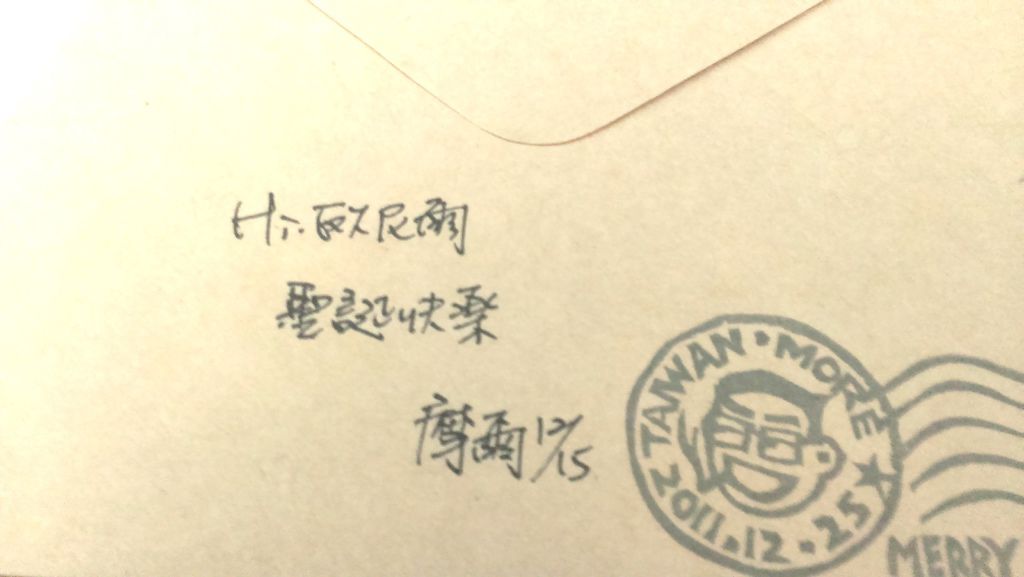 Hi. 歐尼爾
聖誕快樂
摩爾 12/15
TAIWAN · MORE
★ 2011.12.25 ★
MERRY